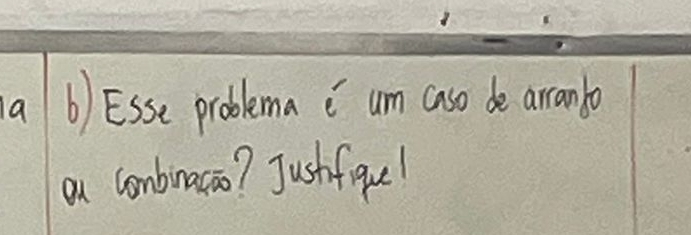 la b) Esse problema é um caso de arranjo
ou combinação? Justifique!